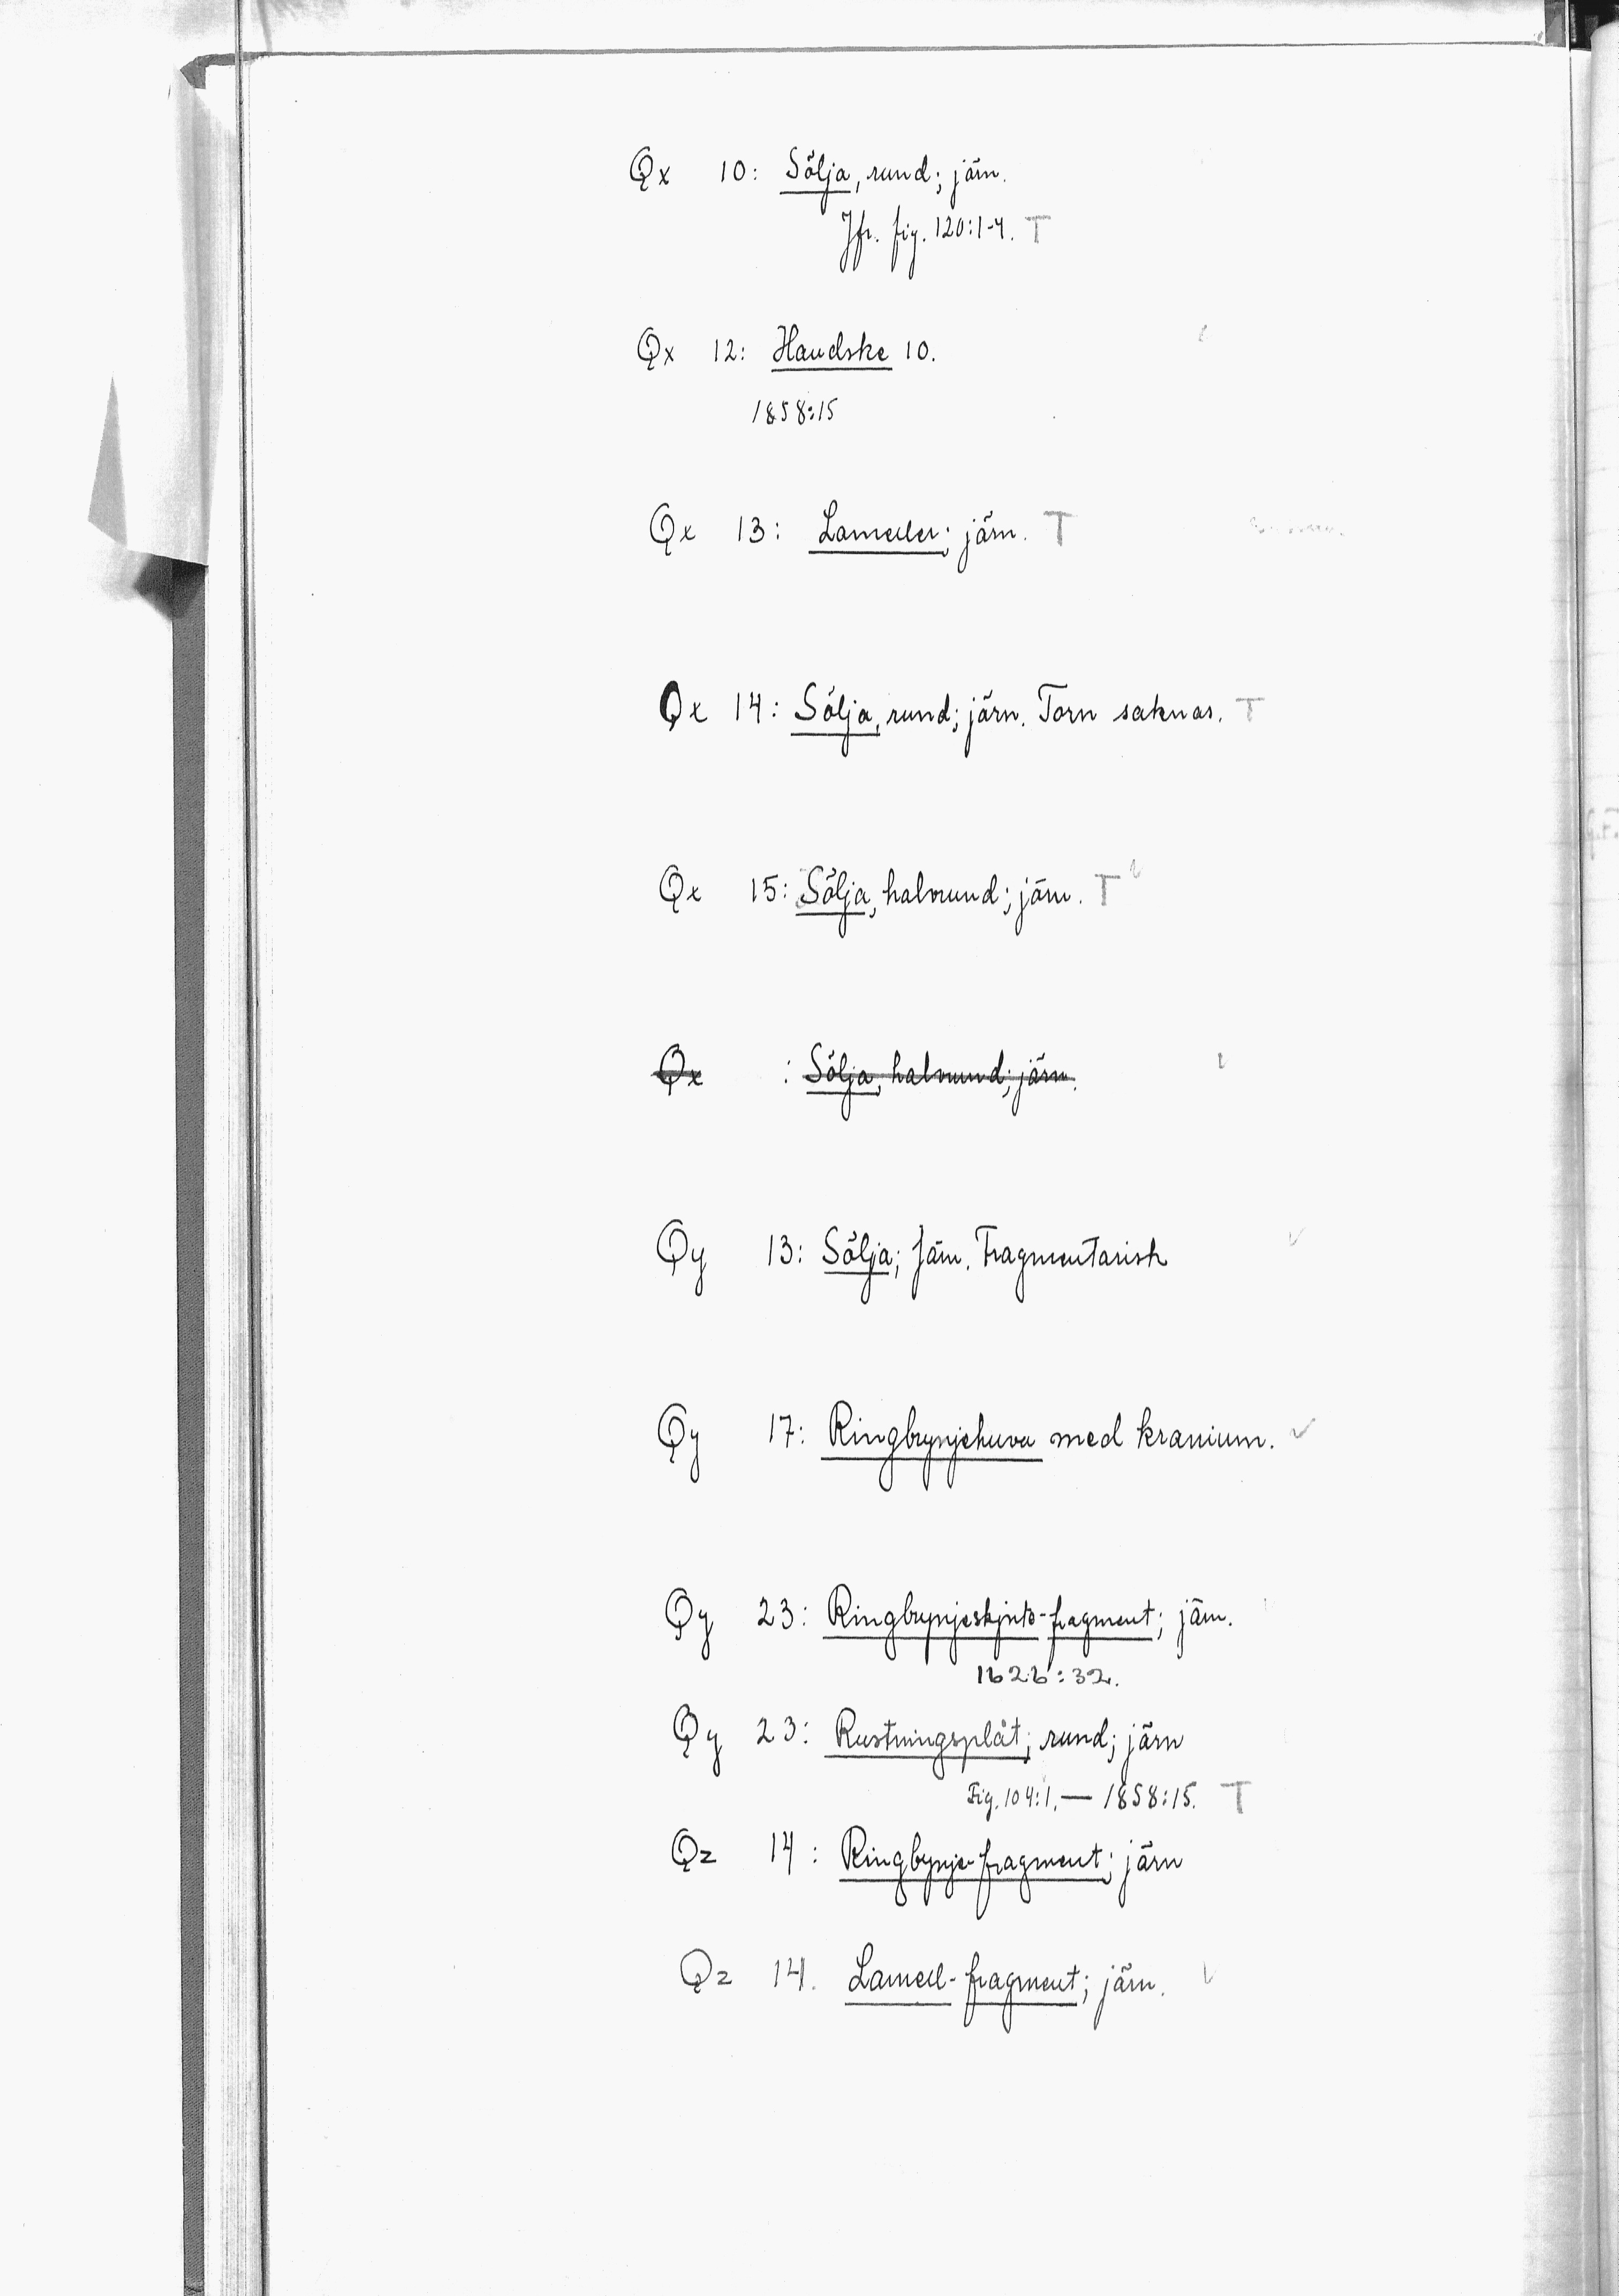 Qx 10: Sölja, rund; järn.
Jfr. fig. 120:1-4. T
Qx 12: Handske 10.
1858:15
Qx 13: Lameller; järn. T
Qx 14: Sölja, rund; järn. Torn saknas. T
Qx 15: Sölja, halvrund; järn. T
Qx : Sölja, halvrund; järn.
Qy 13: Sölja; järn. Fragmentarisk
Qy 17: Ringbrynjehuva med kranium.
Qy 23: Ringbrynjeskjorts-fragment; järn.
1626:32.
Qy 23: Rustningsplåt; rund; järn
Fig. 104:1. — 1858:15. T
Qz 14: Ringbrynje-fragment; järn
Qz 14. Lamell-fragment; järn.